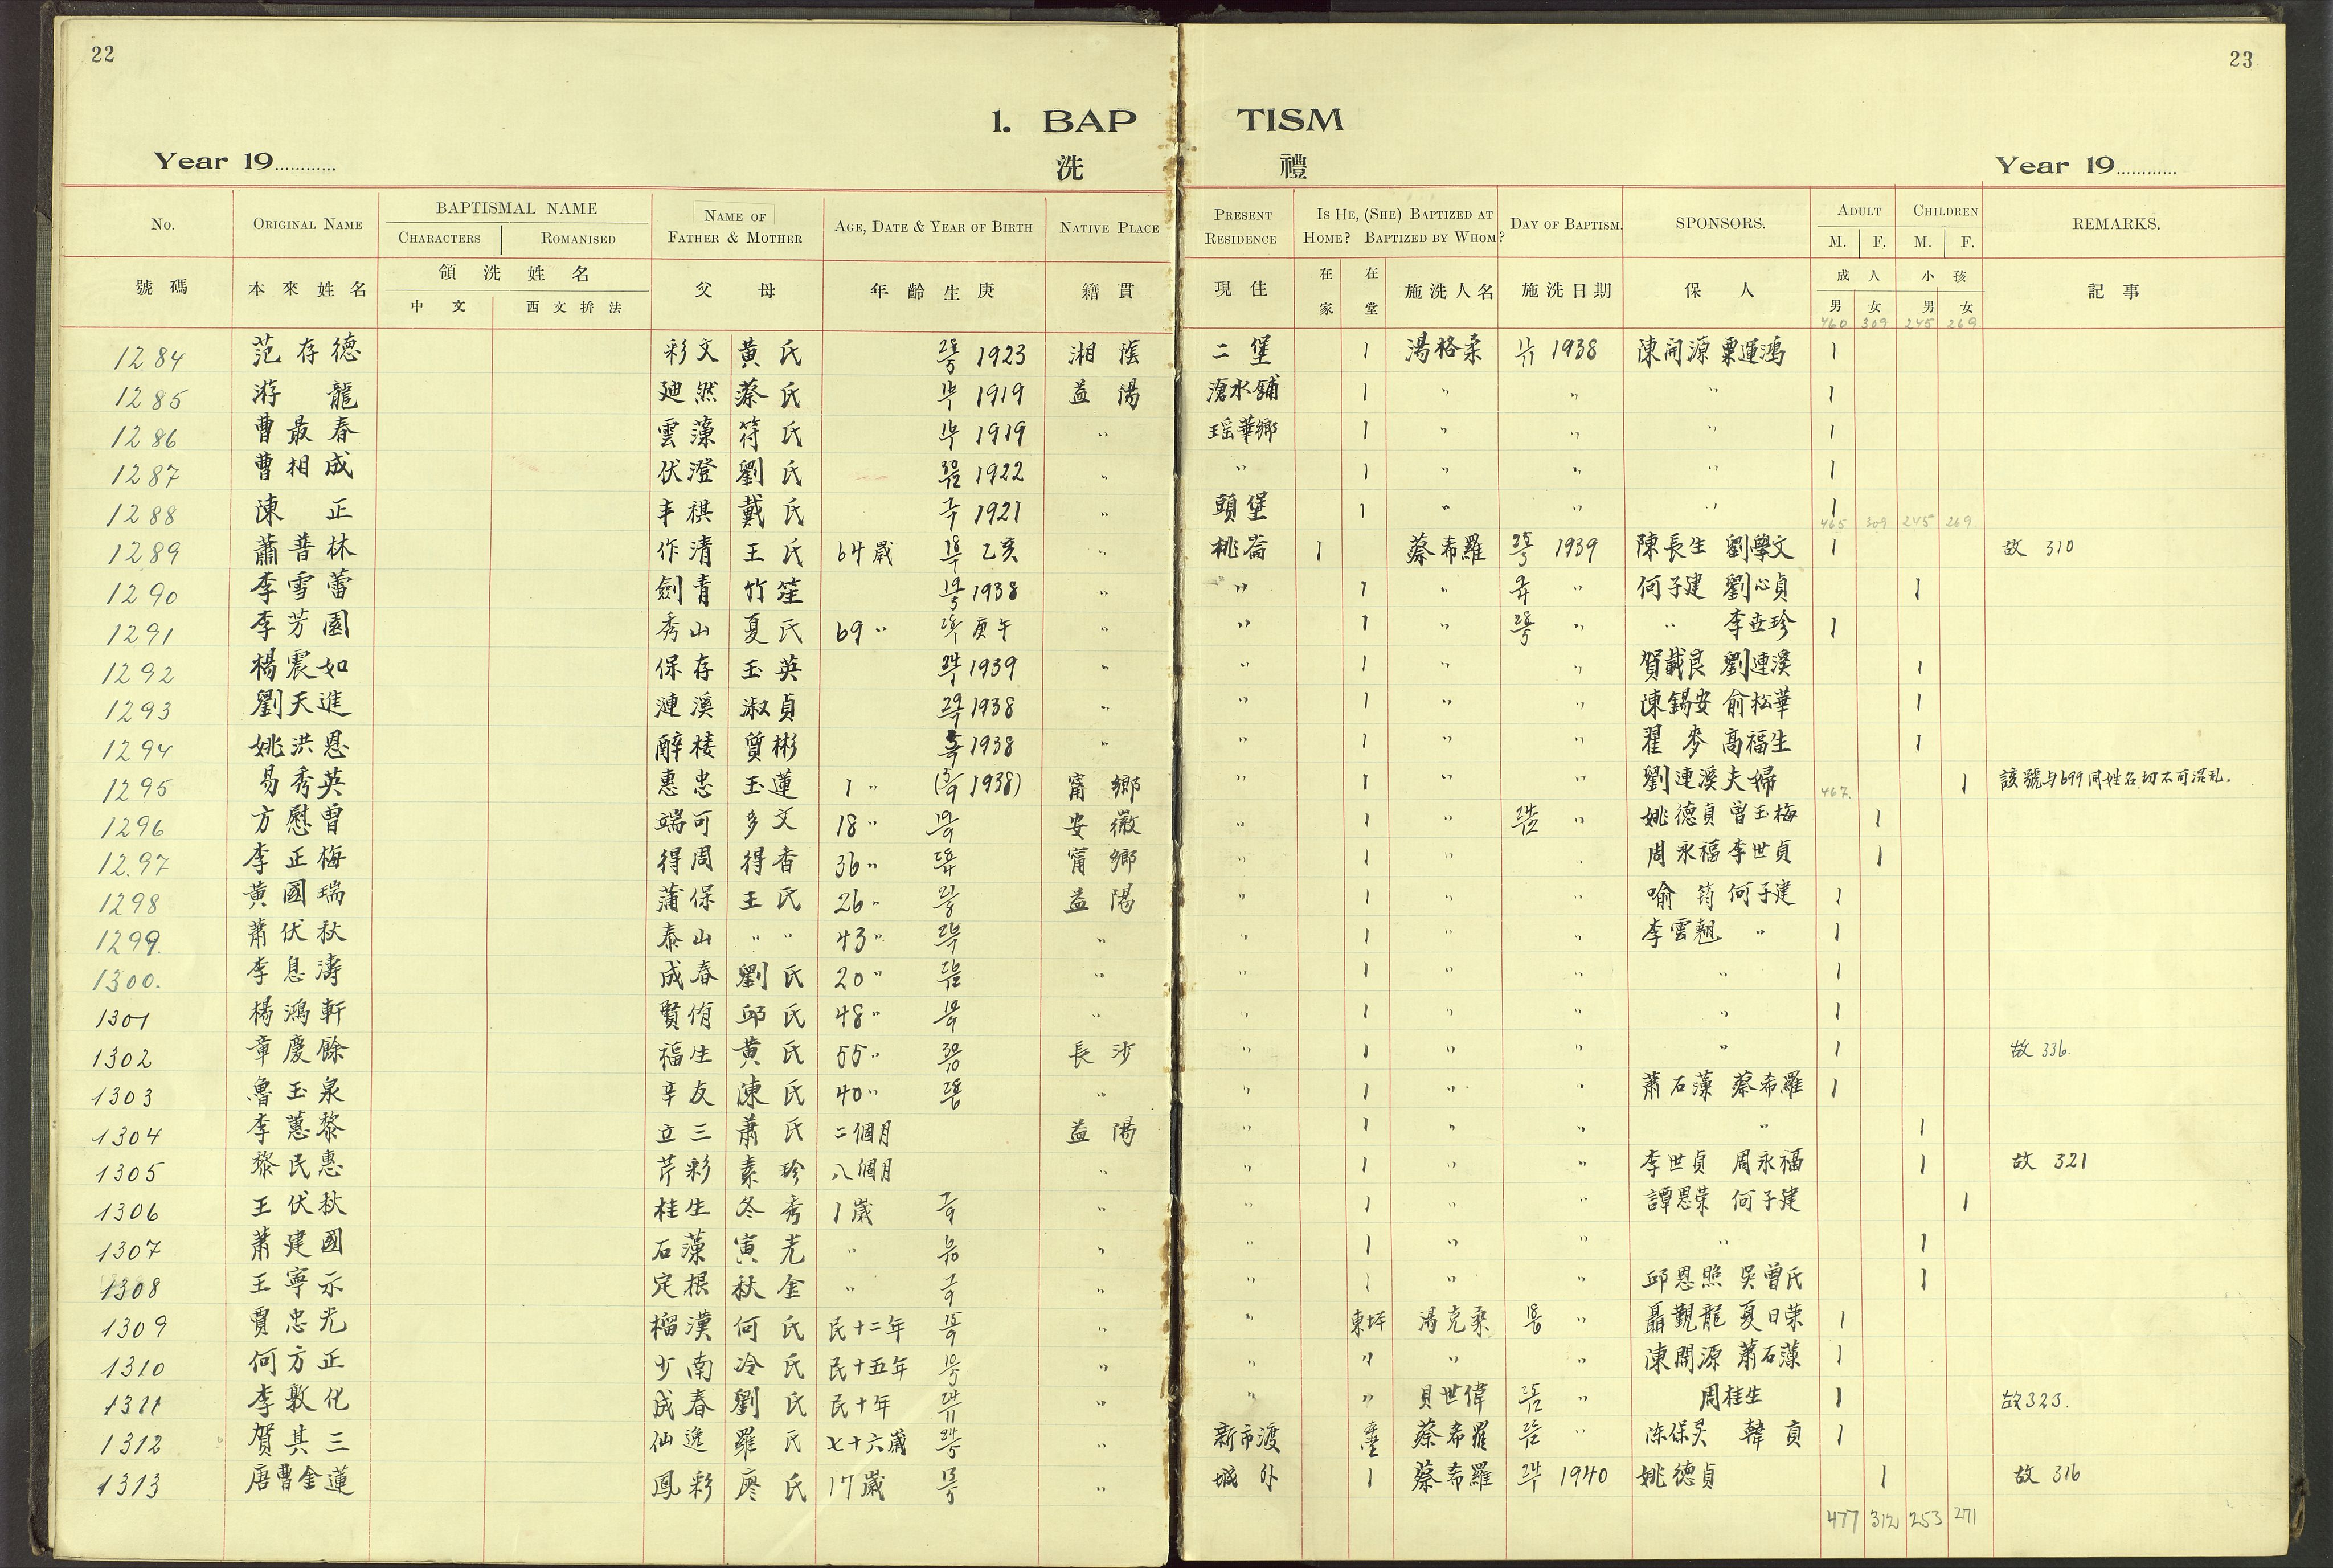 22
23
1. BAP TISM
Year 19............
洗 禮
Year 19............
No. ORIGINAL NAME BAPTISMAL NAME CHARACTERS ROMANISED NAME OF FATHER & MOTHER AGE, DATE & YEAR OF BIRTH NATIVE PLACE PRESENT RESIDENCE IS HE, (SHE) BAPTIZED AT HOME? BAPTIZED BY WHOM? DAY OF BAPTISM. SPONSORS. ADULT M. F. CHILDREN M. F. REMARKS.
號碼 本來姓名 領洗姓名 中文 西文拚法 父母 年齡生庚 籍貫 現住 在家 在堂 施洗人名 施洗日期 保人 成人 男 女 小孩 男 女 記事
460 309 245 269
1284 范存德 彩文 黃氏 1923 湘陰 二堡 1 湯格柔 1938 陳開源 粟運鴻 1
1285 游龍 廸然 蔡氏 1919 益陽 滄水舖 1 " " " 1
1286 曹最春 雲藻 符氏 1919 " 瑶華鄉 1 " " " 1
1287 曹相成 伏澄 劉氏 1922 " " 1 " " " 1
1288 陳正 丰祺 戴氏 1921 " 頭堡 1 " " " 1
465 309 245 269
1289 蕭普林 作清 王氏 64歲 乙亥 " 桃崙 1 蔡希羅 1939 陳長生 劉學文 1 故 310
1290 李雪蕾 劍青 竹笙 1938 " " 1 " " 何子建 劉心貞 1
1291 李芳園 秀山 夏氏 69" 庚午 " " 1 " " " 李世珍 1
1292 楊震如 保存 玉英 1939 " " 1 " " 賀戴良 劉連溪 1
1293 劉天進 漣溪 淑貞 1938 " " 1 " " 陳錫安 俞松華 1
1294 姚洪恩 醉楼 質彬 1938 " " 1 " " 翟麥 高福生 1
1295 易秀英 惠忠 玉蓮 1" (5/9 1938) 甯鄉 " 1 " " 劉連溪夫婦 1 該號与699同姓名切不可混乱.
467.
1296 方慰曾 端可 多文 18" 安徽 " 1 " " 姚德貞 曾玉梅 1
1297 李正梅 得周 得香 36" 甯鄉 " 1 " " 周永福 李世貞 1
1298 黃國瑞 蒲保 王氏 26" 益陽 " 1 " " 喻筠 何子建 1
1299. 蕭伏秋 泰山 " " 43" " " 1 " " 李雲翹 " 1
1300. 李息濤 成春 劉氏 20" " " 1 " " " 1
1301 楊鴻軒 賢侑 邱氏 48" " " 1 " " " 1
1302 章慶餘 福生 黃氏 55" 長沙 " 1 " " " 1 故 336.
1303 魯玉泉 辛友 陳氏 40" " " 1 " " 蕭石藻 蔡希羅 1
1304 李蕙黎 立三 蕭氏 二個月 益陽 " 1 " " " 1
1305 黎民惠 芹彩 素珍 八個月 " " 1 " " 李世貞 周永福 1 故 321
1306 王伏秋 桂生 冬秀 1歲 " " 1 " " 譚恩荣 何子建 1
1307 蕭建國 石藻 寅光 " " " 1 " " " 1
1308 王寧示 定根 秋金 " " " 1 " " 邱恩照 吳曾氏 1
1309 賈忠光 榴漢 何氏 民十二年 " " 東坪 湯克柔 " 聶觀龍 夏日荣 1
1310 何方正 少南 冷氏 民十五年 " " " " " 陳開源 蕭石藻 1
1311 李敦化 成春 劉氏 民十年 " " " 貝世偉 " 周桂生 1 故323.
1312 賀其三 仙逸 羅氏 七十六歲 " 新市渡 蔡希羅 " 陈保灵 韓貞 1
1313 唐曹金蓮 鳳彩 廖氏 17歲 " 城外 1 蔡希羅 1940 姚德貞 1 故 316
477 312 253 271